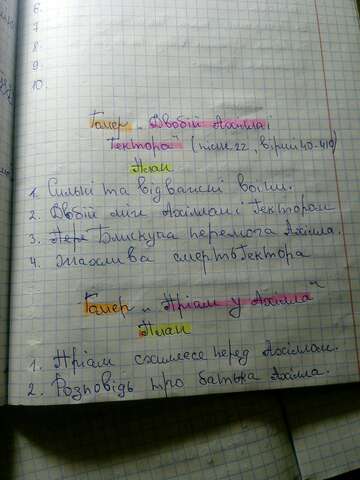 6.
7
8.
9.
10.
Гомер „Двобій Ахілла і
Гектора" (пісня 22, вірші 40-410)
План
1. Сильні та відважні воїни.
2. Двобій між Ахіллом і Гектором
3. Пере Блискуча перемога Ахілла.
4. Жахлива смерть Гектора
Гомер „Пріам у Ахілла"
План
1. Пріам схиляеся перед Ахіллом.
2. Розповідь про батька Ахілла.